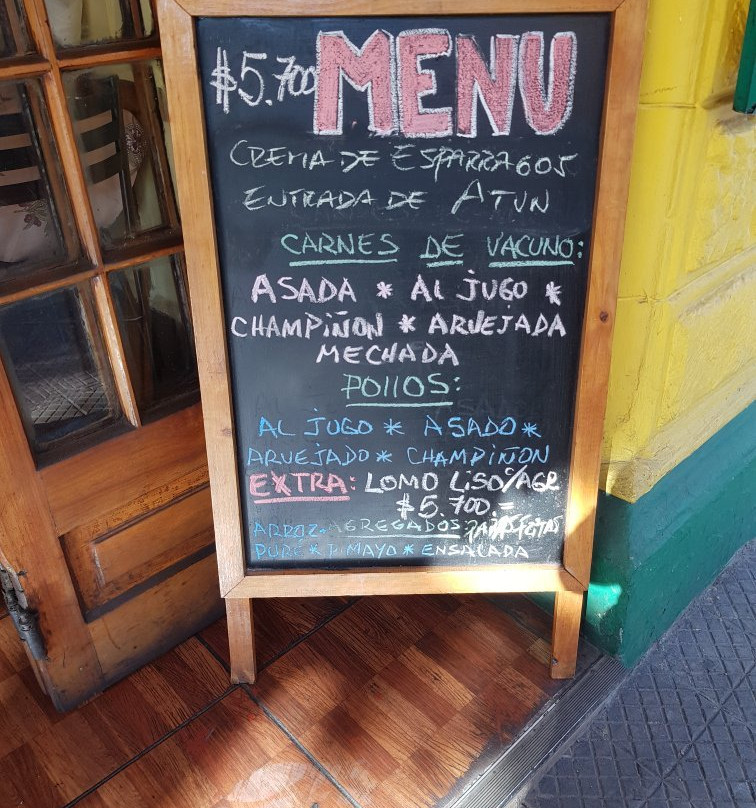 $5.700 MENU
CREMA DE ESPARRAGOS
ENTRADA DE ATUN
CARNES DE VACUNO:
ASADA * AL JUGO *
CHAMPIÑON * ARVEJADA
MECHADA
POLLOS:
AL JUGO * ASADO *
ARVEJADO * CHAMPIÑON
EXTRA: LOMO LISO C/AGR
$5.700.=
ARROZ * AGREGADOS: PAPAS FRITAS
PURÉ * P. MAYO * ENSALADA